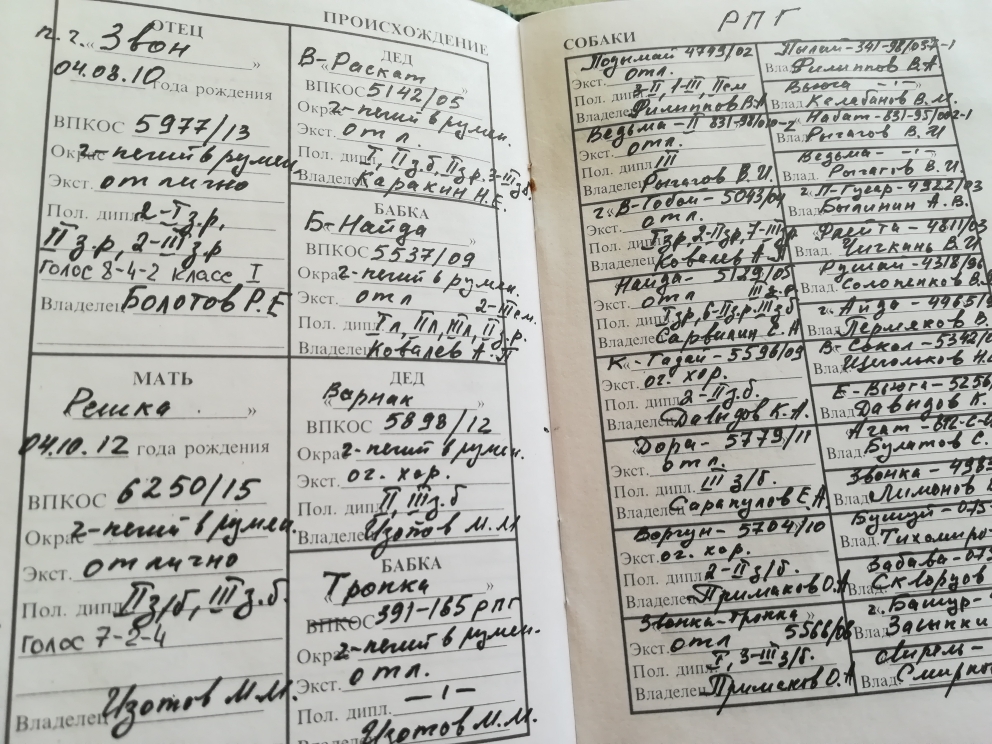 ПРОИСХОЖДЕНИЕ
ОТЕЦ
п.ч. „Звон"
04.08.10 года рождения
ВПКОС 5977/13
Окрас ч-пегий в румян.
Экст. отлично
Пол. дипл. 2-I з.р.,
II з.р, 2-III з.р
Голос 8-4-2 класс I
Владелец Болотов Р.Е
ДЕД
В-Раскат
ВПКОС 5142/05
Окрас ч-пегий в румян.
Экст. отл.
Пол. дипл. I, II з.б, II з.р. 3-III з.б.
Владелец Каракин Н.Е.
БАБКА
Б-Найда
ВПКОС 5537/09
Окрас ч-пегий в румян.
Экст. отл 2-III см.
Пол. дипл. I л, II л, III л, II з.р.
Владелец Ковалев А.П
МАТЬ
Решка
04.10.12 года рождения
ВПКОС 6250/15
Окрас ч-пегий в румян.
Экст. отлично
Пол. дипл. II з/б, III з.б.
Голос 7-2-4
Владелец Изотов М.М.
ДЕД
Варнак
ВПКОС 5898/12
Окрас ч-пегий в румян.
Экст. оч. хор.
Пол. дипл. II, III з.б
Владелец Изотов М.М
БАБКА
Тропка
ВПКОС 391-165 РПГ
Окрас ч-пегий в румян.
Экст. отл.
Пол. дипл. –ı–
Владелец Изотов М.М.
СОБАКИ РПГ
Подымай 4799/02
Экст. отл.
Пол. дипл. 3-II, 1-III, II см
Владелец Филиппов В.А
Ведьма-II 831-98/010-2
Экст. отл.
Пол. дипл. III
Владелец Рычагов В.И.
ч. В-Тобол-5043/04
Экст. отл.
Пол. дипл. I з.р, 2-II з.р, 7-III з.р
Владелец Ковалев А.П
Найда-5129/05
Экст. отл III з.р
Пол. дипл. I з.р, 6-II з.р. III з.б
Владелец Сарвилин Е.А
К-Гадай-5596/09
Экст. оч. хор.
Пол. дипл. 2-II з.б.
Владелец Давыдов К.А.
Дора-5779/11
Экст. отл.
Пол. дипл. III з/б.
Владелец Сарапулов Е.А.
Воргун-5704/10
Экст. оч. хор.
Пол. дипл. 2-II з/б.
Владелец Примаков О.А
Звонка-Тропка
Экст. отл 5566/08
Пол. дипл. I, 3-III з/б.
Владелец Примаков О.А
Пылай-341-98/037-1
Влад. Филиппов В.А.
Вьюга –ı–
Влад. Келебанов В.М.
Набат-831-95/002-1
Влад. Рычагов В.И
Ведьма –ı–
Влад. Рычагов В.И.
ч. П-Гусар-4922/03
Влад. Былинин А.В.
Флейта-4811/03
Влад. Чичкань В.И
Рушай-4318/96
Влад. Солопенков В.
ч. Айда-4965/
Влад. Пермяков В.
В-Сокол-5342/
Влад. Щегольков Н.
Е-Вьюга-5256/
Влад. Давыдов К.
Агат-
Влад. Булатов С.
Звонка-498
Влад. Лимонов
Бушуй-
Влад. Тихомиров
Забава-
Влад. Скворцов
ч. Башур-
Влад. Засыпки
Свирель-
Влад. Смирно